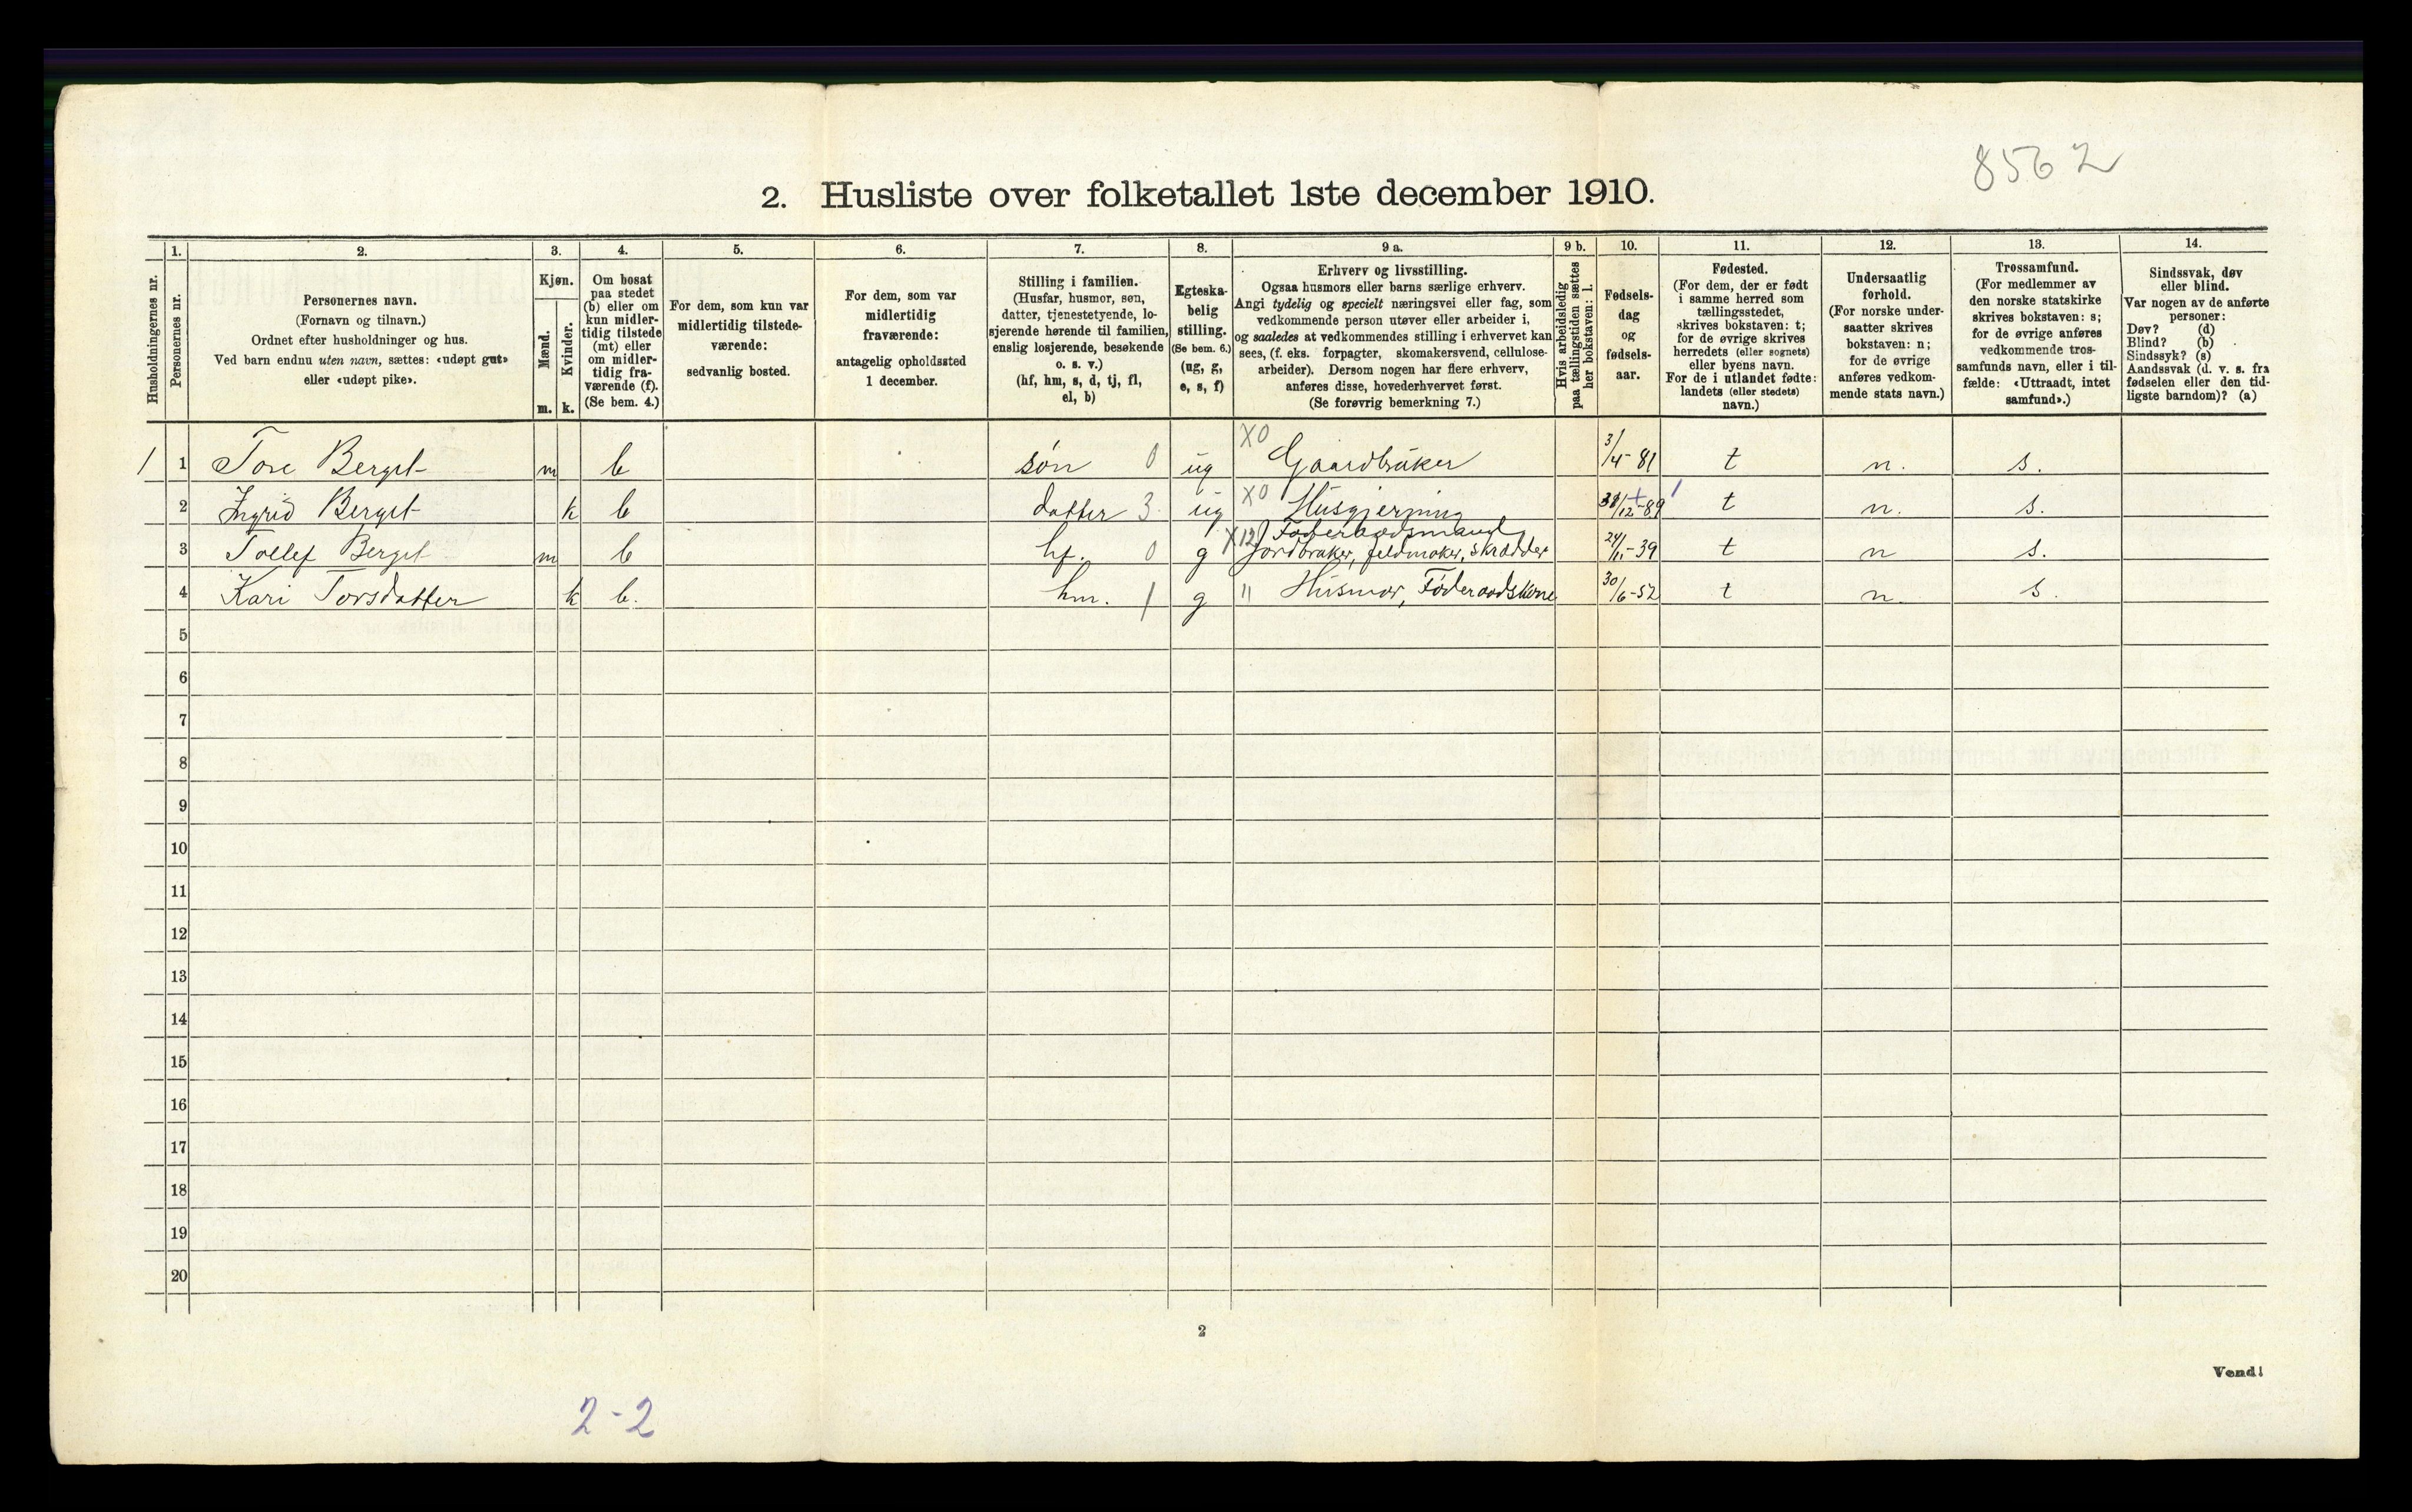 8562
2. Husliste over folketallet 1ste december 1910.
Husholdningernes nr.
1.
Personernes nr.
2.
Personernes navn.
(Fornavn og tilnavn.)
Ordnet efter husholdninger og hus.
Ved barn endnu uten navn, sættes: «udøpt gut»
eller «udøpt pike».
3.
Kjøn.
Mænd.
m.
Kvinder.
k.
4.
Om bosat
paa stedet
(b) eller om
kun midler-
tidig tilstede
(mt) eller
om midler-
tidig fra-
værende (f).
(Se bem. 4.)
5.
For dem, som kun var
midlertidig tilstede-
værende:
sedvanlig bosted.
6.
For dem, som var
midlertidig
fraværende:
antagelig opholdssted
1 december.
7.
Stilling i familien.
(Husfar, husmor, søn,
datter, tjenestetyende, lo-
sjerende hørende til familien,
enslig losjerende, besøkende
o. s. v.)
(hf, hm, s, d, tj, fl,
el, b)
8.
Egteska-
belig
stilling.
(Se bem. 6.)
(ug, g,
e, s, f)
9 a.
Erhverv og livsstilling.
Ogsaa husmors eller barns særlige erhverv.
Angi tydelig og specielt næringsvei eller fag, som
vedkommende person utøver eller arbeider i,
og saaledes at vedkommendes stilling i erhvervet kan
sees, (f. eks. forpagter, skomakersvend, cellulose-
arbeider). Dersom nogen har flere erhverv,
anføres disse, hovederhvervet først.
(Se forøvrig bemerkning 7.)
9 b.
Hvis arbeidsledig
paa tællingstiden sættes
her bokstaven: l.
10.
Fødsels-
dag
og
fødsels-
aar.
11.
Fødested.
(For dem, der er født
i samme herred som
tællingsstedet,
skrives bokstaven: t;
for de øvrige skrives
herredets (eller sognets)
eller byens navn.
For de i utlandet fødte:
landets (eller stedets)
navn.)
12.
Undersaatlig
forhold.
(For norske under-
saatter skrives
bokstaven: n;
for de øvrige
anføres vedkom-
mende stats navn.)
13.
Trossamfund.
(For medlemmer av
den norske statskirke
skrives bokstaven: s;
for de øvrige anføres
vedkommende tros-
samfunds navn, eller i til-
fælde: «Uttraadt, intet
samfund».)
14.
Sindssvak, døv
eller blind.
Var nogen av de anførte
personer:
Døv? (d)
Blind? (b)
Sindssyk? (s)
Aandssvak (d. v. s. fra
fødselen eller den tid-
ligste barndom)? (a)
1 1 Tore Berget m b søn 0 ug X0 Gaardbruker 3/4-81 t n. s.
2 Ingrid Berget k b datter 3 ug X0 Husgjerning /12-89 t n. s.
Føderaadsmand
3 Tollef Berget m b hf. 0 g X12 Jordbruker, feldmaker, skrædder 24/11-39 t n s.
4 Kari Torsdatter k b. hm. 1 g " Husmor, Føderaadskone 30/6-52 t n. s.
5
6
7
8
9
10
11
12
13
14
15
16
17
18
19
20
2
Vend!
2-2